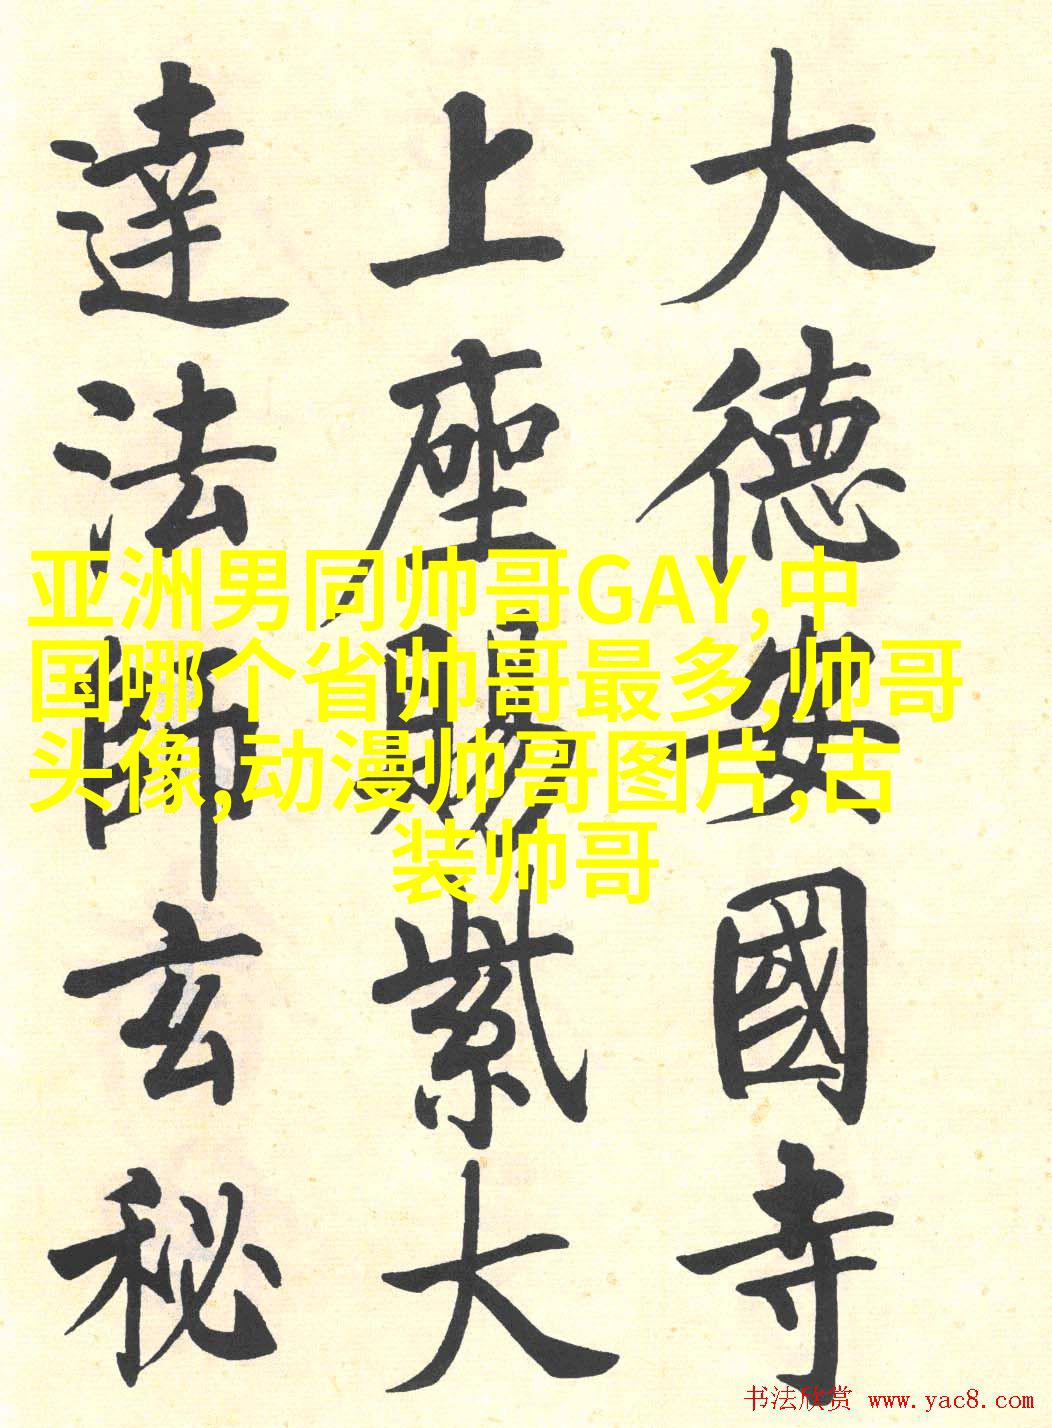 大德安國寺
上座賜紫大
達法師玄秘
亚洲男同帅哥GAY,中
国哪个省帅哥最多,帅哥
头像,动漫帅哥图片,古
装帅哥
书法欣赏 www.yac8.com